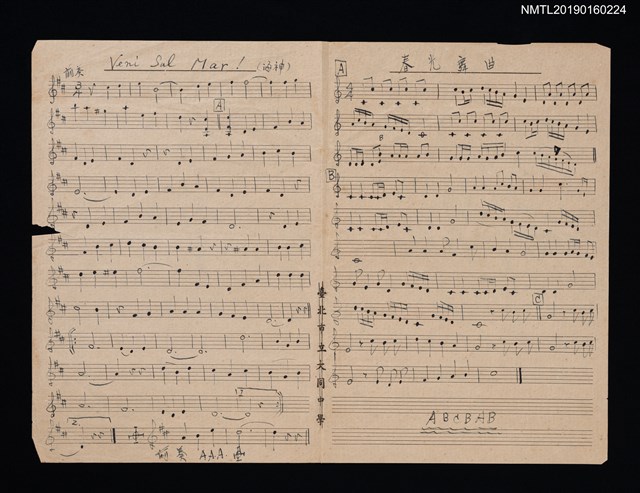 NMTL20190160224
Veni Sul Mar! (海神)
前奏
A
2.
前奏 A.A.A.
臺北市立大同中學
春之舞曲
A
B
B
C
ABCBAB